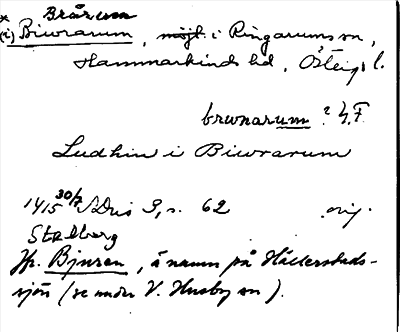 Bråxum
*
(i) Biwrarum, möjl. i Ringarums sn,
Hammarkinds hd, Östergl.
brwnarum? G.F.
Ludhin i Biwrarum
1415 30/7 SDns 3, s. 62 orig.
Stålberg
Jfr. Bjuren, å namn på Hällerstads-
sjön (se under V. Husby sn).